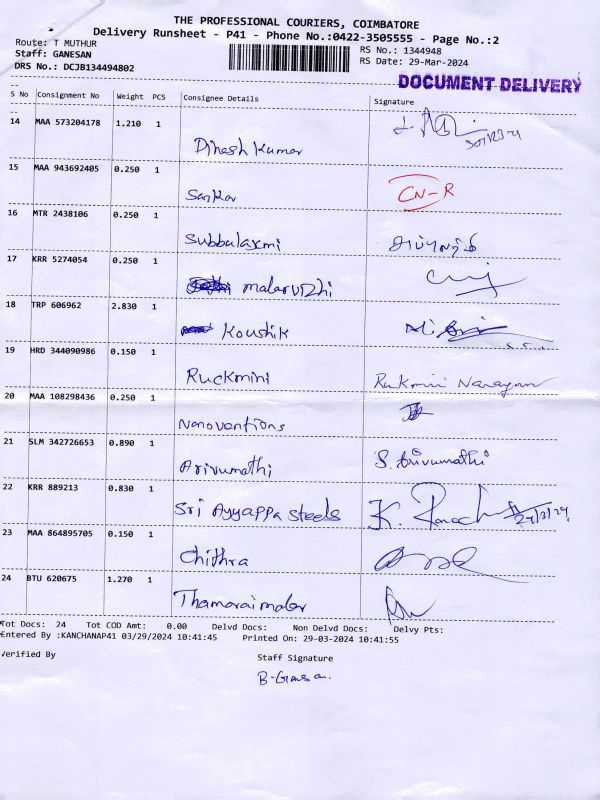 THE PROFESSIONAL COURIERS, COIMBATORE
Delivery Runsheet - P41 - Phone No.:0422-3505555 - Page No.:2
Route: T MUTHUR RS No.: 1344948
Staff: GANESAN RS Date: 29-Mar-2024
DRS No.: DCJB134494802
DOCUMENT DELIVERY
S No Consignment No Weight PCS Consignee Details Signature
14 MAA 573204178 1.210 1
Dinesh Kumar
15 MAA 943692405 0.250 1
Sankar CN-R
16 MTR 2438106 0.250 1
Subbulaxmi
17 KRR 5274054 0.250 1
malarvizhi
18 TRP 606962 2.830 1
Koushik
19 HRD 344090986 0.150 1
Ruckmini Rukmini Narayan
20 MAA 108298436 0.250 1
Nanoventions
21 SLM 342726653 0.890 1
Arivumathi S. Arivumathi
22 KRR 889213 0.830 1
Sri Ayyappa Steels K.
23 MAA 864895705 0.150 1
Chithra
24 BTU 620675 1.270 1
Thamaraimalar
Tot Docs: 24 Tot COD Amt: 0.00 Delvd Docs: Non Delvd Docs: Delvy Pts:
Entered By :KANCHANAP41 03/29/2024 10:41:45 Printed On: 29-03-2024 10:41:55
Verified By Staff Signature